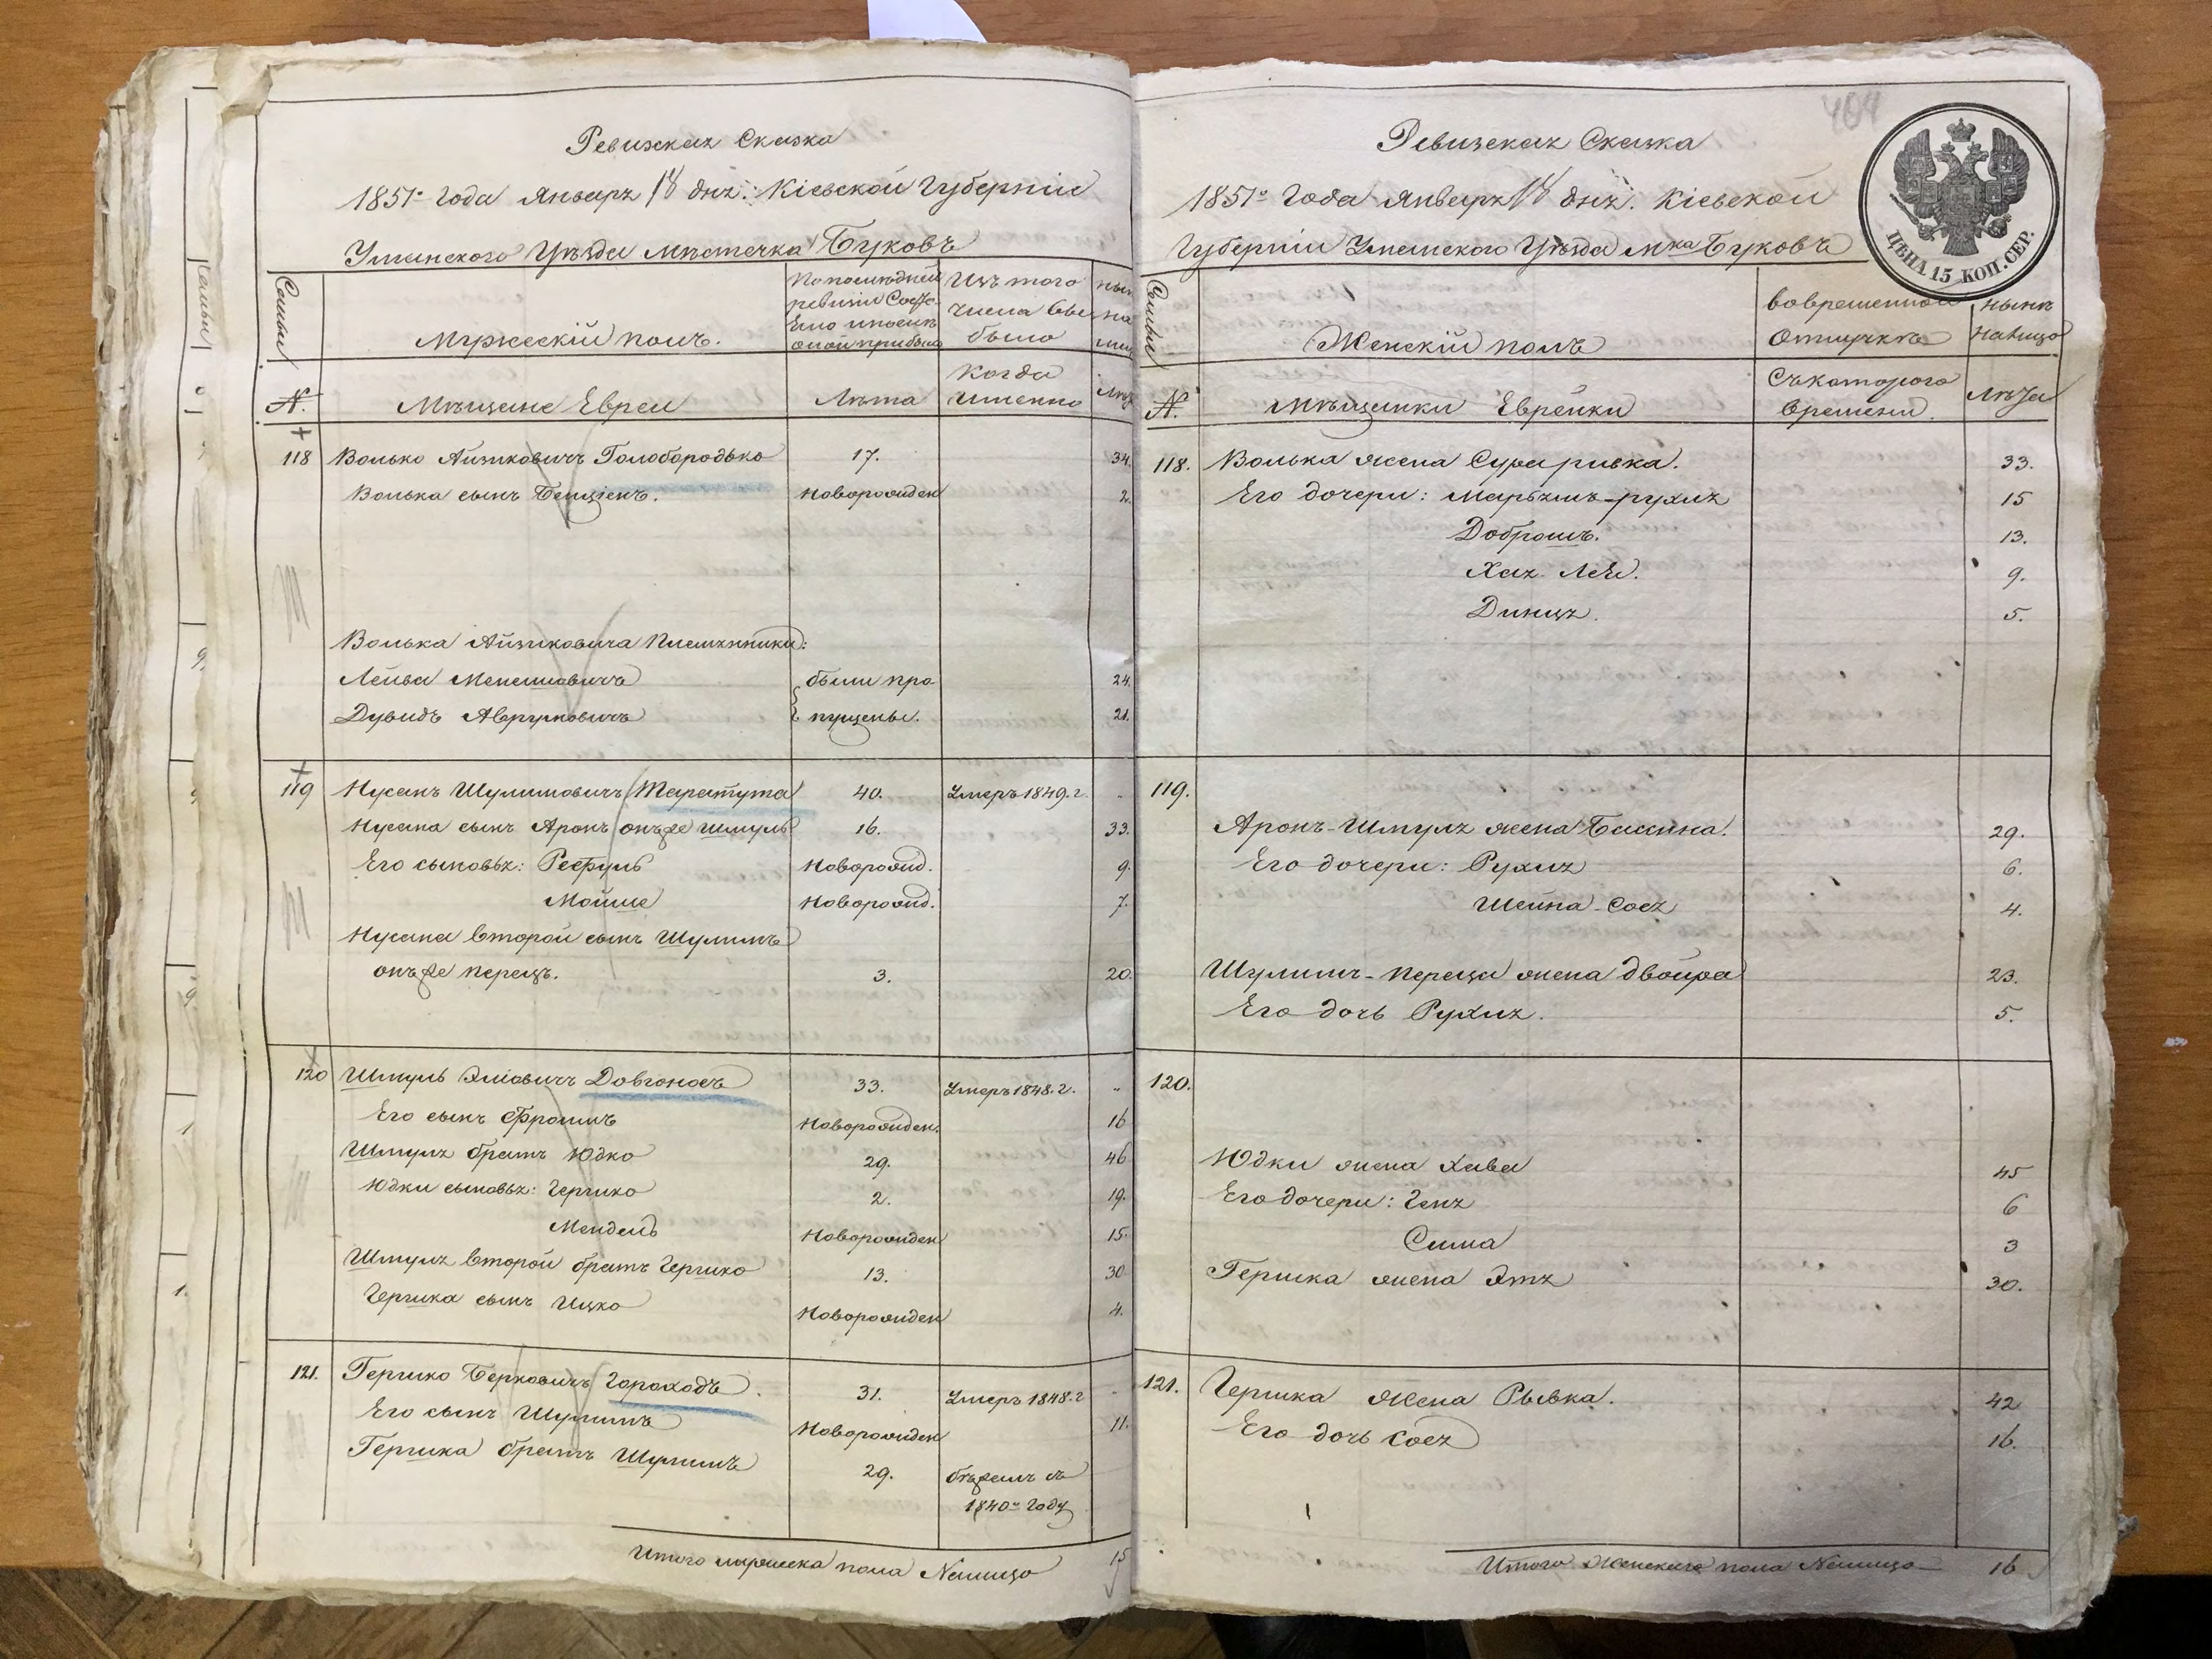 Ревизская Сказка
1851го года Января 18 дня: Кіевской Губерніи
Уманского Уѣзда мѣстечка Буковъ
Семьи
Мужескій полъ.
По последней
ревизіи Состо-
яло и после
оной прибыло
Изъ того
числа выбыло
ныне на лицо
№.
Мѣщане Евреи
Лѣта
когда
именно
Лѣта
118
Волько Айзиковичъ Голобородько
17.
34.
Волька сынъ Бенціенъ.
Новорожден
2.
Волька Айзиковича Племянники:
Лейба Менашовичъ
были про-
24.
Дувидъ Аврумовичъ
пущены.
21.
119
Нусанъ Шулимовичъ Таратута
40.
Умеръ 1849. г.
Нусана сынъ Аронъ онъже Шмуль
16.
33.
Его сыновья: Рефуль
Новорожд.
9.
Мойше
Новорожд.
7.
Нусана второй сынъ Шулимъ
онъже перецъ.
3.
20.
120
Шмуль Эліовичъ Довгоносъ
33.
Умеръ 1848. г.
Его сынъ Фроимъ
Новорожден.
16
Шмуля братъ Юдко
29.
46
Юдки сыновья: Гершко
2.
19.
Мендель
Новорожден
15.
Шмуля второй братъ Гершко
13.
30
Гершка сынъ Ицко
Новорожден
4.
121.
Гершко Берковичъ Гороходъ.
31.
Умеръ 1848. г
Его сынъ Шулимъ
Новорожден
11.
Гершка братъ Шулимъ
29.
бѣжалъ въ
1840м году
Итого мужеска пола Налицо
15
404
Ревизская Сказка
1851го года Января 18 дня. Кіевской
Губерніи Уманского Уѣзда мка Буковъ
ЦѢНА 15 КОП. СЕР.
Семьи
Женскій полъ
во временной
отлучкѣ
нынѣ
На лицо
№.
Мѣщанки Еврейки
Съ которого
времени.
Лѣта
118.
Волька жена Сура ривка.
33.
Его дочери: Марьямъ-рухля
15
Доброшъ.
13.
Хая Лея.
9.
Динця.
5.
119.
Аронъ-Шмуля жена Басшива.
29.
Его дочери: Рухля
6.
Шейна-Сося
4.
Шулимъ-переца жена двойра
23.
Его дочь Рухля.
5.
120.
Юдки жена Хава
45
Его дочери: Геня
6
Сима
3
Гершка жена Этя
30.
121.
Гершка жена Рывка.
42
Его дочь Сося
16.
Итого Женскаго пола Налицо
16